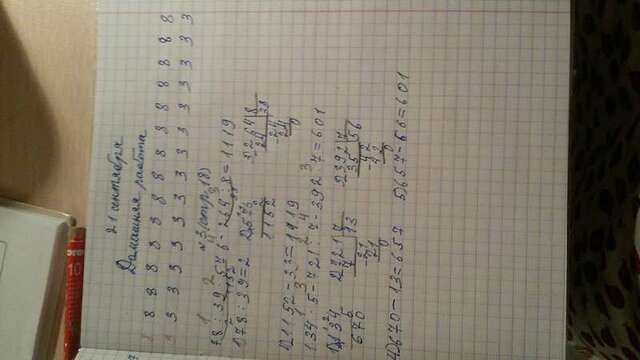 21 сентября
Домашняя работа
8 8 8 8 8 8 8 8 8 8 8 8 8 8
3 3 3 3 3 3 3 3 3 3 3 3 3 3
№3 (стр. 18)
78 : 39 · 576 - 264 : 8 = 1119
1) 78 : 39 = 2 2) 576 3) 264 8
2 24 33
1152 24
24
0
4) 1152 - 33 = 1119
134 · 5 - 721 : 7 - 392 : 7 = 601
1) 134 2) 721 7 3) 392 7
5 7 13 35 56
670 21 42
21 42
0 0
4) 670 - 13 = 657 5) 657 - 56 = 601